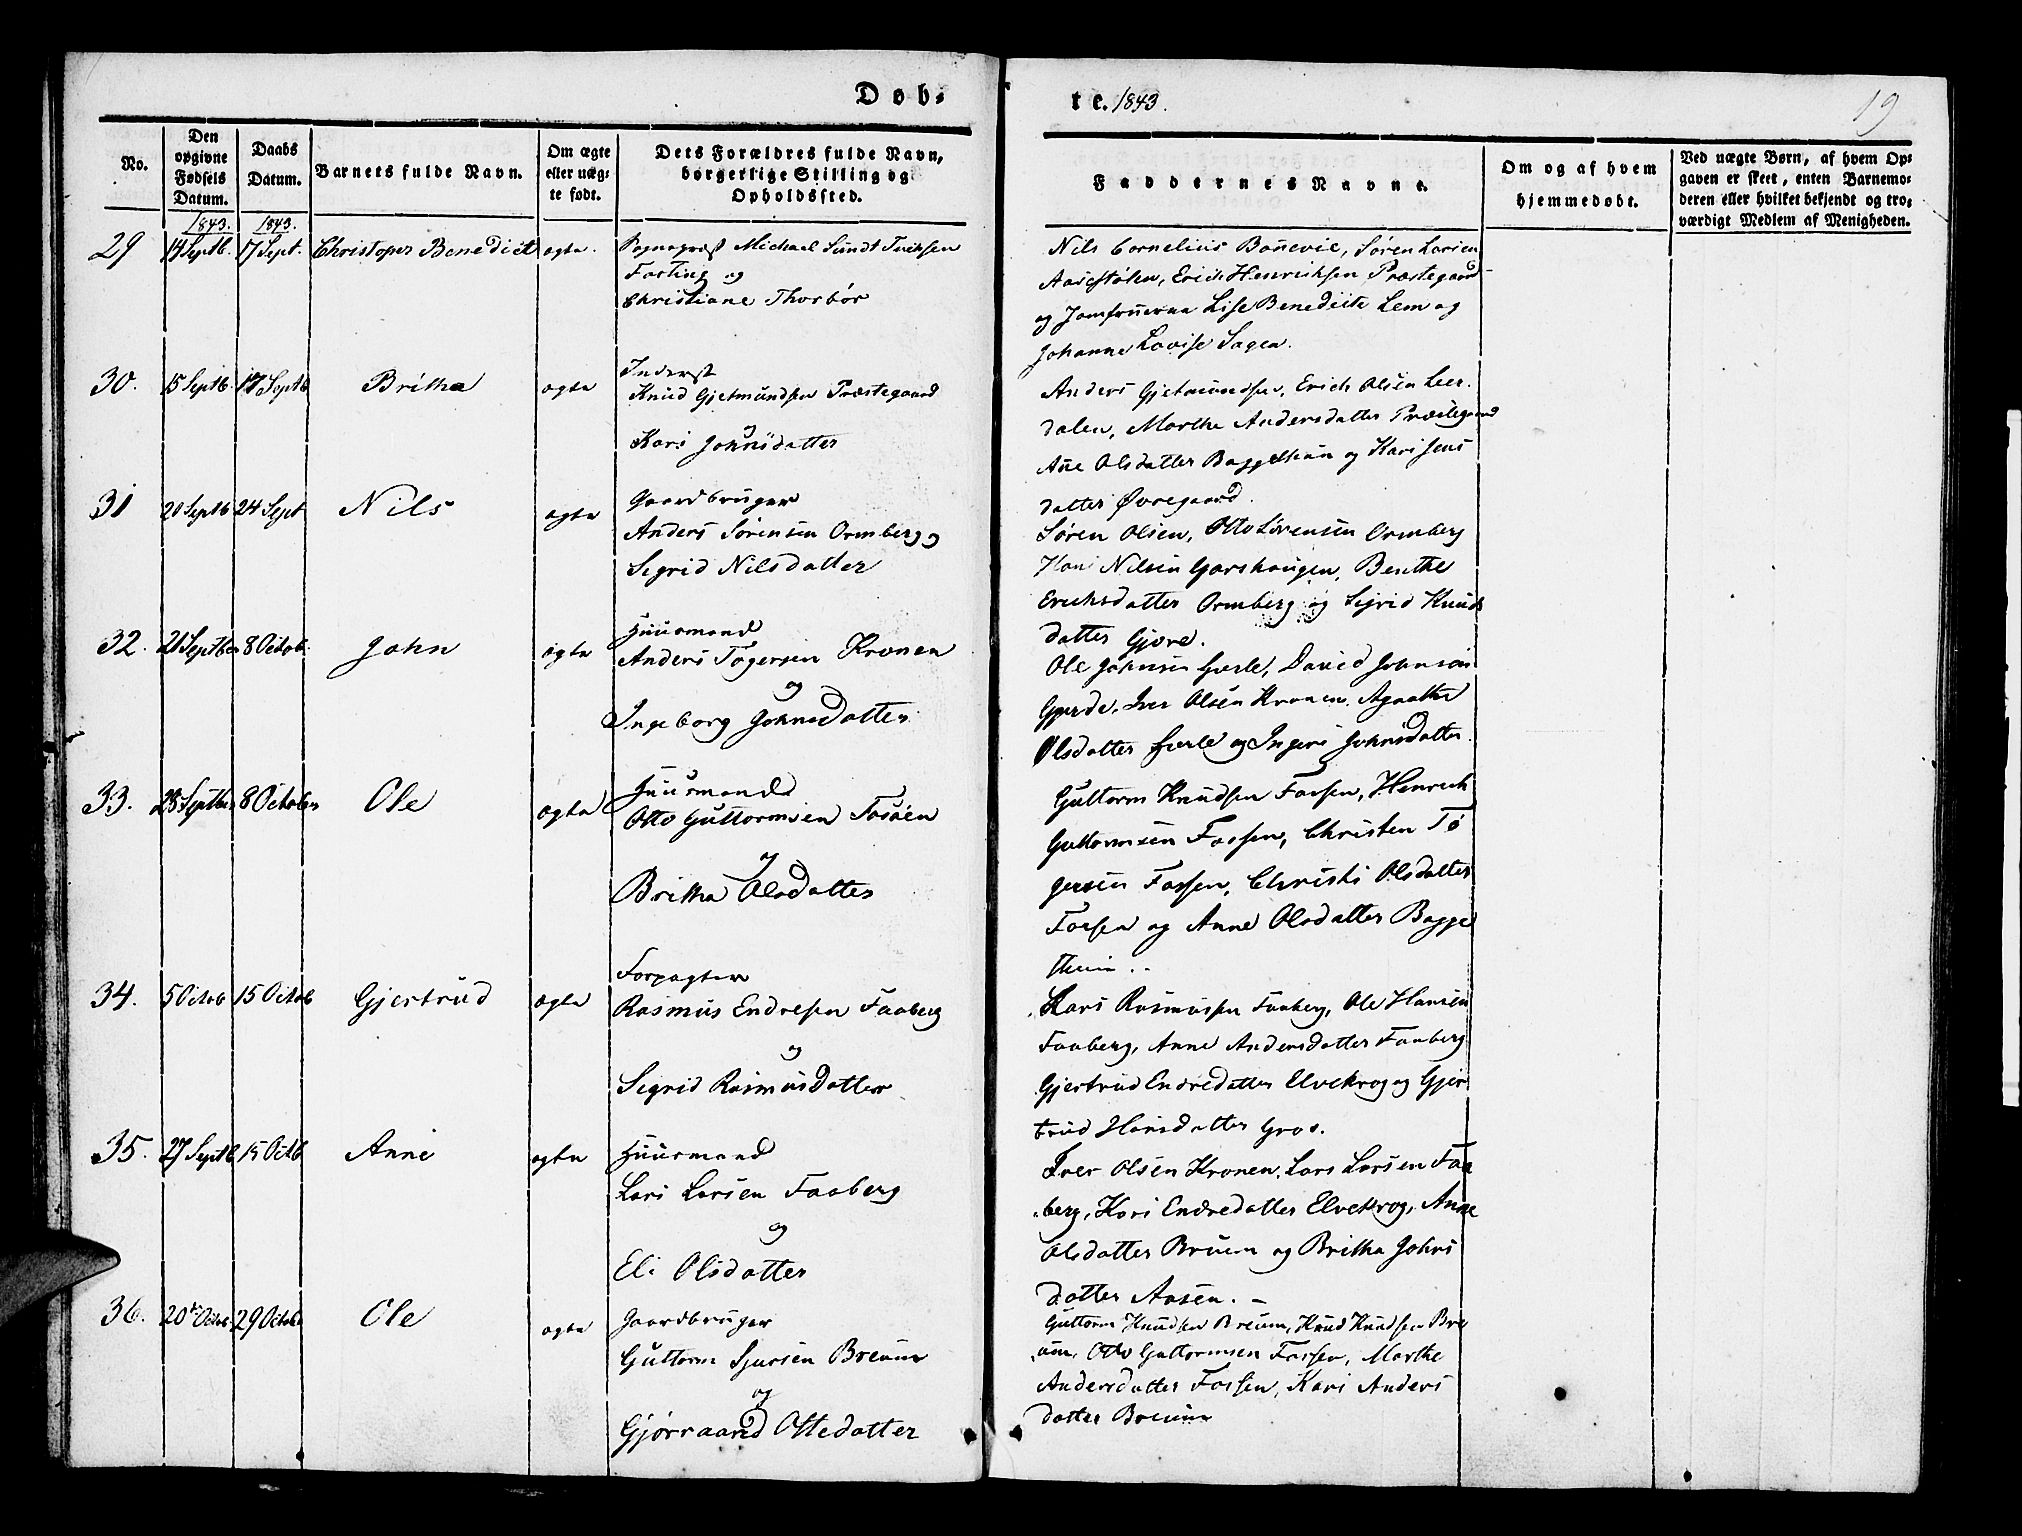 Døb-
te. 1843.
19
No.
Den opgivne Fødsels Datum.
Daabs Datum.
Barnets fulde Navn.
Om ægte eller uægte født.
Dets Forældres fulde Navn, borgerlige Stilling og Opholdssted.
Faddernes Navne.
Om og af hvem hjemmedøbt.
Ved uægte Børn, af hvem Opgaven er skeet, enten Barnemoderen eller hvilket bekjendt og troværdigt Medlem af Menigheden.
1843. 1843.
29 14 Septb. 17 Sept. Christopher Benedict ægte. Sognepræst Michael Sundt Tucksen
Fasting og
Christiane Thorbør
Nils Cornelius Bonnevie, Søren Larsen
Aasestølen, Erich Henriksen Præstegaard
og Jomfruerne Lise Benedicte Lem og
Johanne Lovise Sagen.
30. 15 Septb. 17 Septb Britha ægte Inderst
Knud Gjetmundsen Præstegaard
og
Kari Johnsdatter
Anders Gjetmundsen, Erich Olsen Leer
dalen, Marthe Andersdatter Præstegaard
Ane Olsdatter Baggethun og Kari Jens
datter Øvregaard.
31 20 Septb 24 Sept Nils ægte Gaardbruger
Anders Sørensen Ormberg og
Sigrid Nilsdatter
Søren Olsen, Otto Sørensen Ormberg
Hans Nilsen Garshaugen, Benthe
Erichsdatter Ormberg og Sigrid Knuds
datter Gjøre.
32. 21 Septber 8 Octob. John ægte Huusmand
Anders Tøgersen Kronen
og
Ingeborg Johnsdatter
Ole Johnsen Gerde, David Johnsen
Gjerde, Iver Olsen Kronen, Agaathe
Olsdatter Gerde og Ingeri Johnsdatter
33. 28 Septber 8 October Ole ægte Huusmand
Otto Guttormsen Fossen
og
Britha Olsdatter
Guttorm Knudsen Fossen, Henrich
Guttormsen Fossen, Christen Tø
gersen Fossen, Christi Olsdatter
Fossen og Anne Olsdatter Bagge
thun..
34. 5 Octob 15 Octob Gjertrud ægte Forpagter
Rasmus Endresen Faaberg
og
Sigrid Rasmusdatter
Lars Rasmussen Faaberg, Ole Hansen
Faaberg, Anne Andersdatter Faaberg
Gjertrud Endredatter Elvekrog og Gjer
trud Hansdatter Gros.
35. 27 Septb 15 Octb Anne ægte Huusmand
Lars Larsen Faaberg
og
Eli Olsdatter
Iver Olsen Kronen, Lars Larsen Faa
berg, Kari Endredatter Elvekrog, Anne
Olsdatter Bruum og Britha Johns
datter Aasen. –
36. 20de Octob 29 Octobr Ole ægte Gaardbruger
Guttorm Sjursen Breum
og
Gjørraand Ottedatter
Guttorm Knudsen Breum, Knud Knudsen Bre
um, Otto Guttormsen Fossen, Marthe
Andersdatter Fossen, Kari Anders
datter Breum